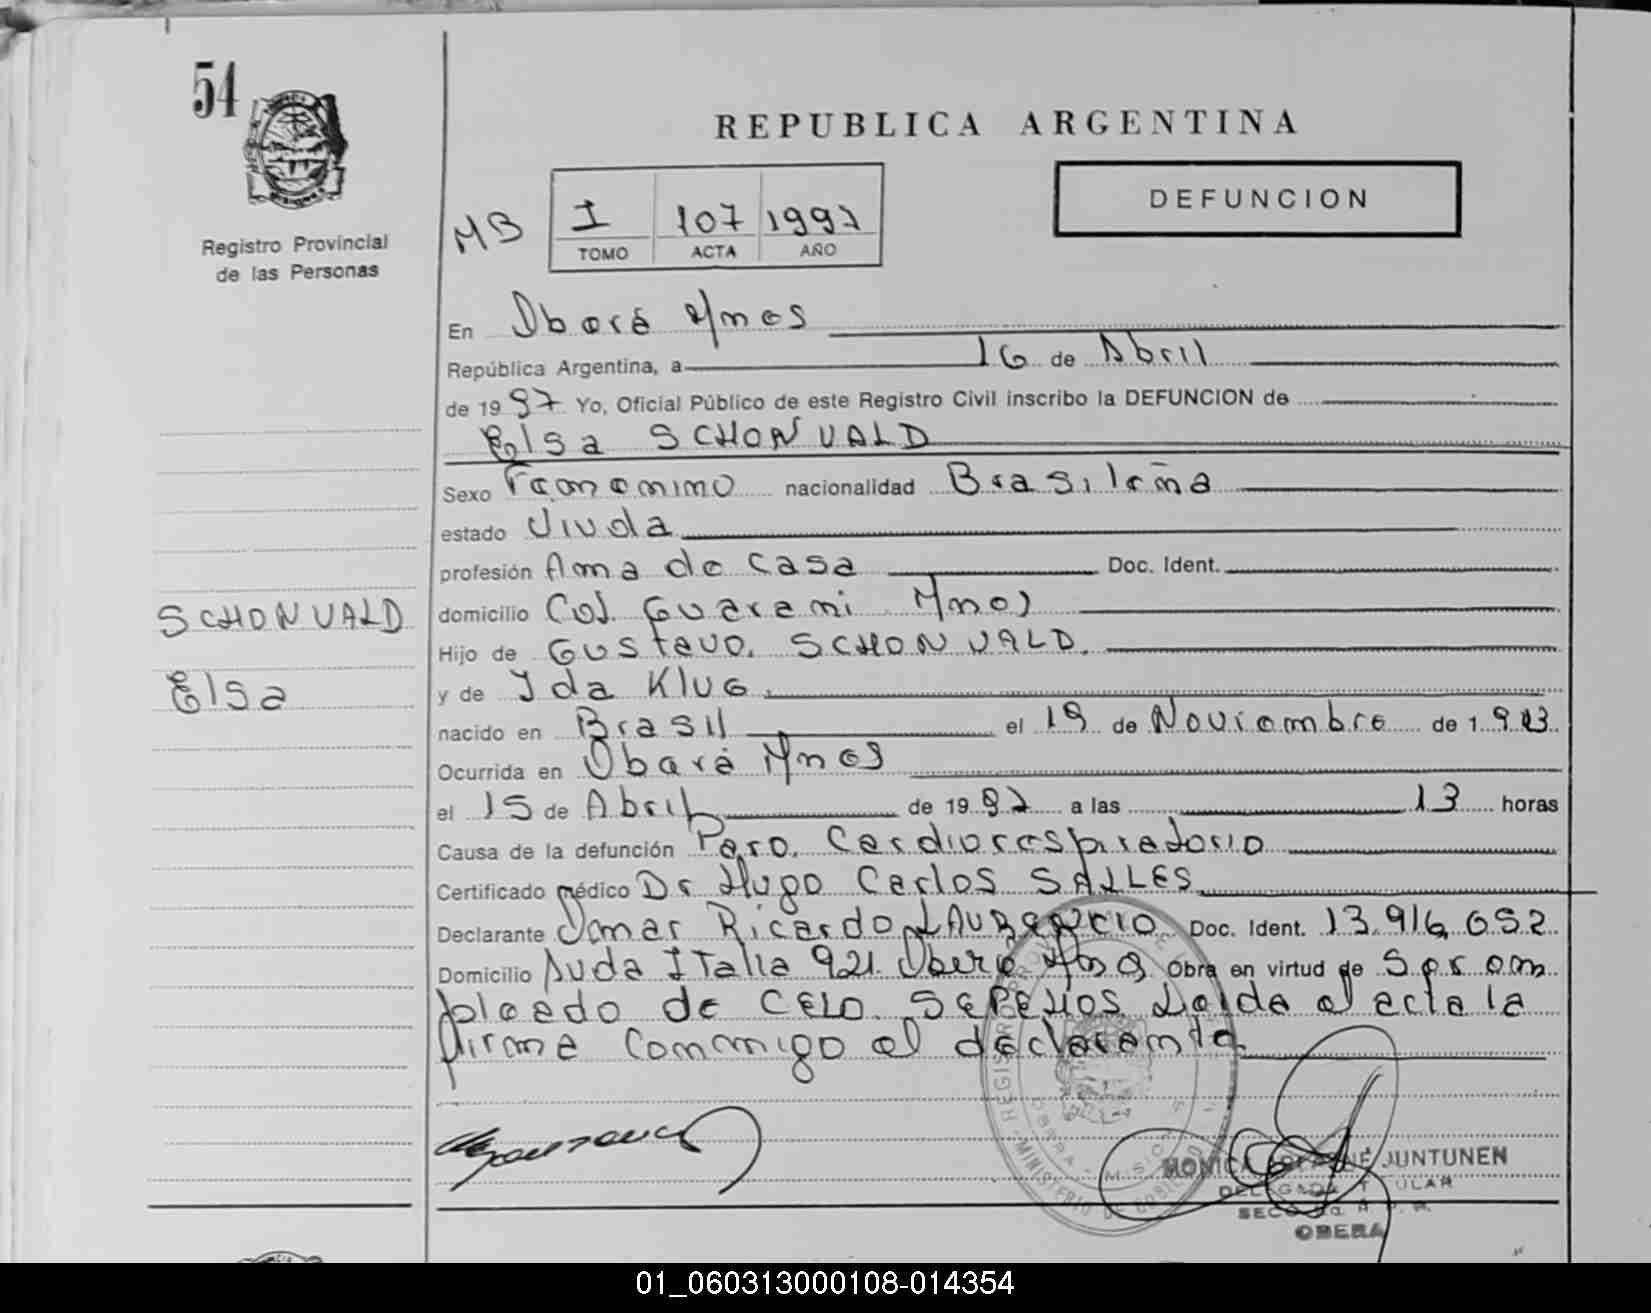 54
REPUBLICA ARGENTINA
DEFUNCION
Registro Provincial
de las Personas
MB
I 107 1997
TOMO ACTA AÑO
En Oberá Mnes
República Argentina, a 16 de Abril
de 1997 Yo, Oficial Público de este Registro Civil inscribo la DEFUNCION de
Elsa SCHONVALD
Sexo Femenino nacionalidad Brasileña
estado Viuda
profesión Ama de casa Doc. Ident.
SCHONVALD
Elsa
domicilio Col. Guarani Mnes
Hijo de Gustavo. SCHONVALD.
y de Ida Klug.
nacido en Brasil el 19 de Noviembre de 1.913
Ocurrida en Oberá Mnes
el 15 de Abril de 1997 a las 13 horas
Causa de la defunción Paro. Cardiorespiratorio
Certificado médico Dr Hugo Carlos SALLES
Declarante Omar Ricardo Doc. Ident. 13.916.052
Domicilio Avda Italia 921. Oberá Mnes Obra en virtud de Ser em
pleado de CELO. SEPELIOS Leida el acta la
firma conmigo el declarante.
MONICA JUNTUNEN
OBERA
01_060313000108-014354